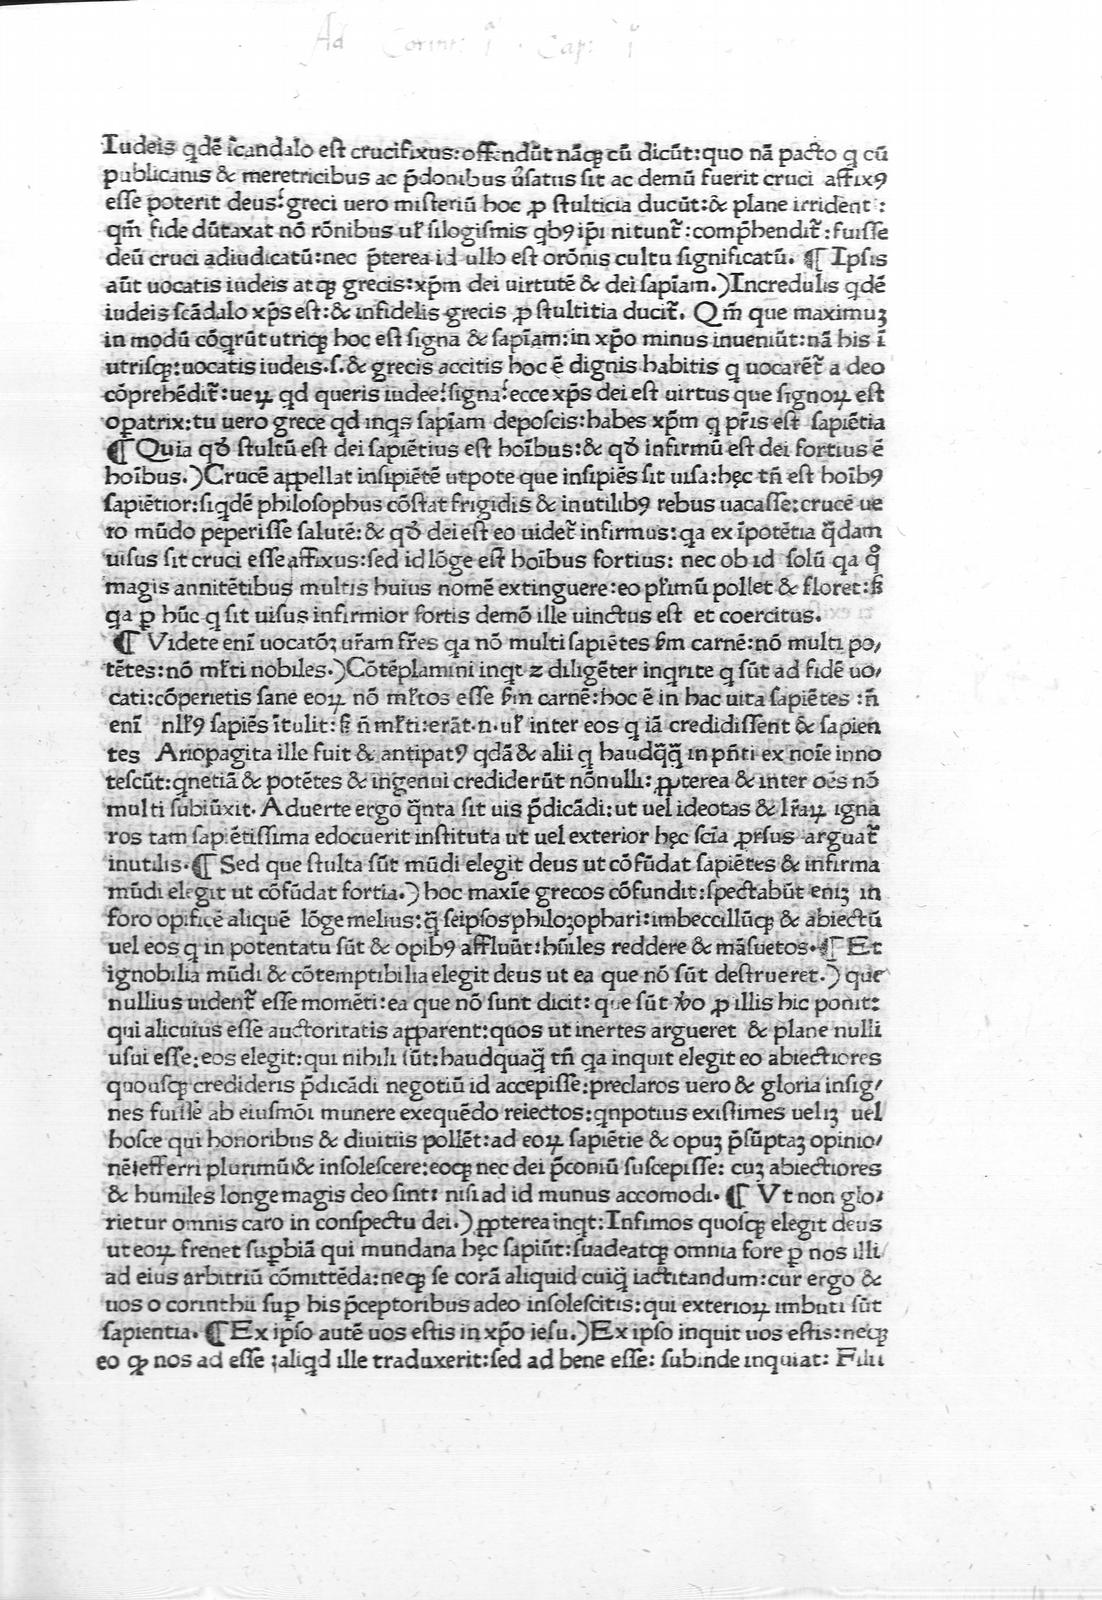 Ad Corint: i · Cap: i
Iudeis qdē scandalo est crucifixus:offendūt nāq; cū dicūt:quo nā pacto q cū
publicanis & meretricibus ac p̄donibus ūsatus sit ac demū fuerit cruci affixꝯ
esse poterit deus: greci uero misteriū hoc ꝓ stulticia ducūt:& plane irridēnt:
qm̄ fide dūtaxat nō rōnibus ul' silogismis qbꝯ ip̄i nitunt̄:comp̄hendit̄:fuisse
deū cruci adiudicatū:nec p̄terea id ullo est orōnis cultu significatū. ¶ Ipsis
aūt uocatis iudeis atq; grecis:xp̄m dei uirtutē & dei sapīam.)Incredulis qdē
iudeis scādalo xp̄s est:& infidelis grecis ꝓ stultitia ducit̄. Qm̄ que maximuꝫ
in modū cōgrūt utriq; hoc est signa & sapīam:in xp̄o minus inueniūt:nā his ī
utrisq;:uocatis iudeis.s.& grecis accitis hoc ē dignis habitis q uocarēt̄ a deo
cōprehēdit̄:ueꝝ qd queris iudee: signa: ecce xp̄s dei est uirtus que signoꝝ est
opatrix:tu uero grece qd inqs sapīam deposcis:habes xp̄m q pr̄is est sapiētia
¶ Quia qđ stultū est dei sapiētius est hoībus:& qđ infirmū est dei fortius ē
hoībus.)Crucē appellat insipiētē utpote que insipiēs sit uisa:hęc tn̄ est hoībꝯ
sapiētior:siqdē philosophus cōstat frigidis & inutilibꝯ rebus uacasse:crucē ue
ro mūdo peperisse salutē:& qđ dei est eo uidet̄ infirmus:qa ex īpotētia q̄dam
uisus sit cruci esse affixus:sed id lōge est hoībus fortius: nec ob id solū qa q̊
magis annitētibus multis huius nomē extinguere:eo pl'imū pollet & floret:ß
qa ꝑ hūc q sit uisus infirmior fortis demō ille uinctus est et coercitus.
¶ Videte enī uocatōꝫ ur̄am fr̄es qa nō multi sapiētes ẜm carnē:nō multi po,
tētes:nō ml'ti nobiles.)Cōtēplamini inqt ꝛ diligēter inqrite q sūt ad fidē uo,
cati:cōperietis sane eoꝝ nō ml'tos esse ẜm carnē:hoc ē in hac uita sapiētes :n̄
enī nl'lꝯ sapiēs ītulit: ß n̄ ml'ti:erāt.n.ul' inter eos q iā credidissent & sapien
tes Ariopagita ille fuit & antipatꝯ qdā & alii q haudq̄q̄ in pn̄ti ex noīe inno
tescūt:qnetiā & potētes & ingenui crediderūt nōnulli: ꝓpterea & inter oēs nō
multi subiūxit. Aduerte ergo q̄nta sit uis p̄dicādi:ut uel ideotas & lr̄aꝝ igna
ros tam sapiētissima edocuerit instituta ut uel exterior hęc scīa ꝓrsus arguat̄
inutilis.¶ Sed que stulta sūt mūdi elegit deus ut cōfūdat sapiētes & infirma
mūdi elegit ut cōfūdat fortia.) hoc maxīe grecos cōfundit:spectabūt eniꝫ in
foro opificē aliquē lōge melius:q̄ seipsos philoꝫophari:imbecillūq; & abiectū
uel eos q in potentatu sūt & opibꝯ affluūt:hūiles reddere & māsuetos.¶ Et
ignobilia mūdi & cōtemptibilia elegit deus ut ea que nō sūt destrueret.) que
nullius uident̄ esse momēti:ea que nō sunt dicit: que sūt ꝟo ꝓ illis hic ponit:
qui alicuius esse auctoritatis apparent:quos ut inertes argueret & plane nulli
usui esse:eos elegit:qui nihili sūt:haudquaq̄ tn̄ qa inquit elegit eo abiectiores
quousq; credideris p̄dicādi negotiū id accepisse:preclaros uero & gloria insig,
nes fuisse ab eiusmōi munere exequēdo reiectos:qnpotius existimes ueliꝫ uel
hosce qui honoribus & diuitiis pollēt:ad eoꝝ sapiētie & opuꝫ p̄sūptaꝫ opinio,
nē iefferri plurimū & insolescere:eoq; nec dei p̄coniū suscepisse: cuꝫ abiectiores
& humiles longe magis deo sint: nisi ad id munus accomodi. ¶ Vt non glo,
rietur omnis caro in conspectu dei.) ꝓpterea inqt:Infimos quosq; elegit deus
ut eoꝝ frenet suꝑbiā qui mundana hęc sapiūt:suadeatq; omnia fore ꝑ nos illi
ad eius arbitriū cōmittēda:neq; se corā aliquid cuiq̄ iactitandum:cur ergo &
uos o corinthii suꝑ his p̄ceptoribus adeo insolescitis:qui exterioꝝ imbuti sūt
sapientia. ¶ Ex ipso autē uos estis in xp̄o iesu.)Ex ipso inquit uos estis:neq;
eo ꝙ nos ad esse aliqd ille traduxerit:sed ad bene esse: subinde inquiat: Filii